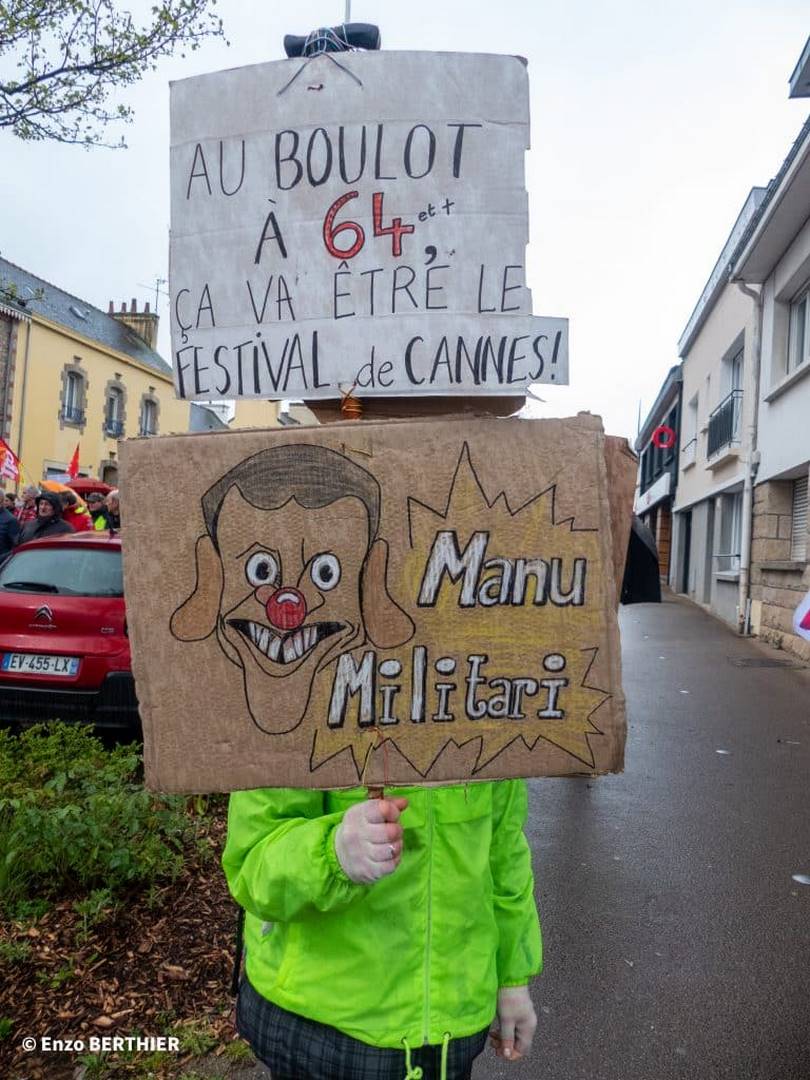 AU BOULOT
À 64 et +,
ÇA VA ÊTRE LE
FESTIVAL de CANNES!
Manu
Militari
EV-455-LX
© Enzo BERTHIER